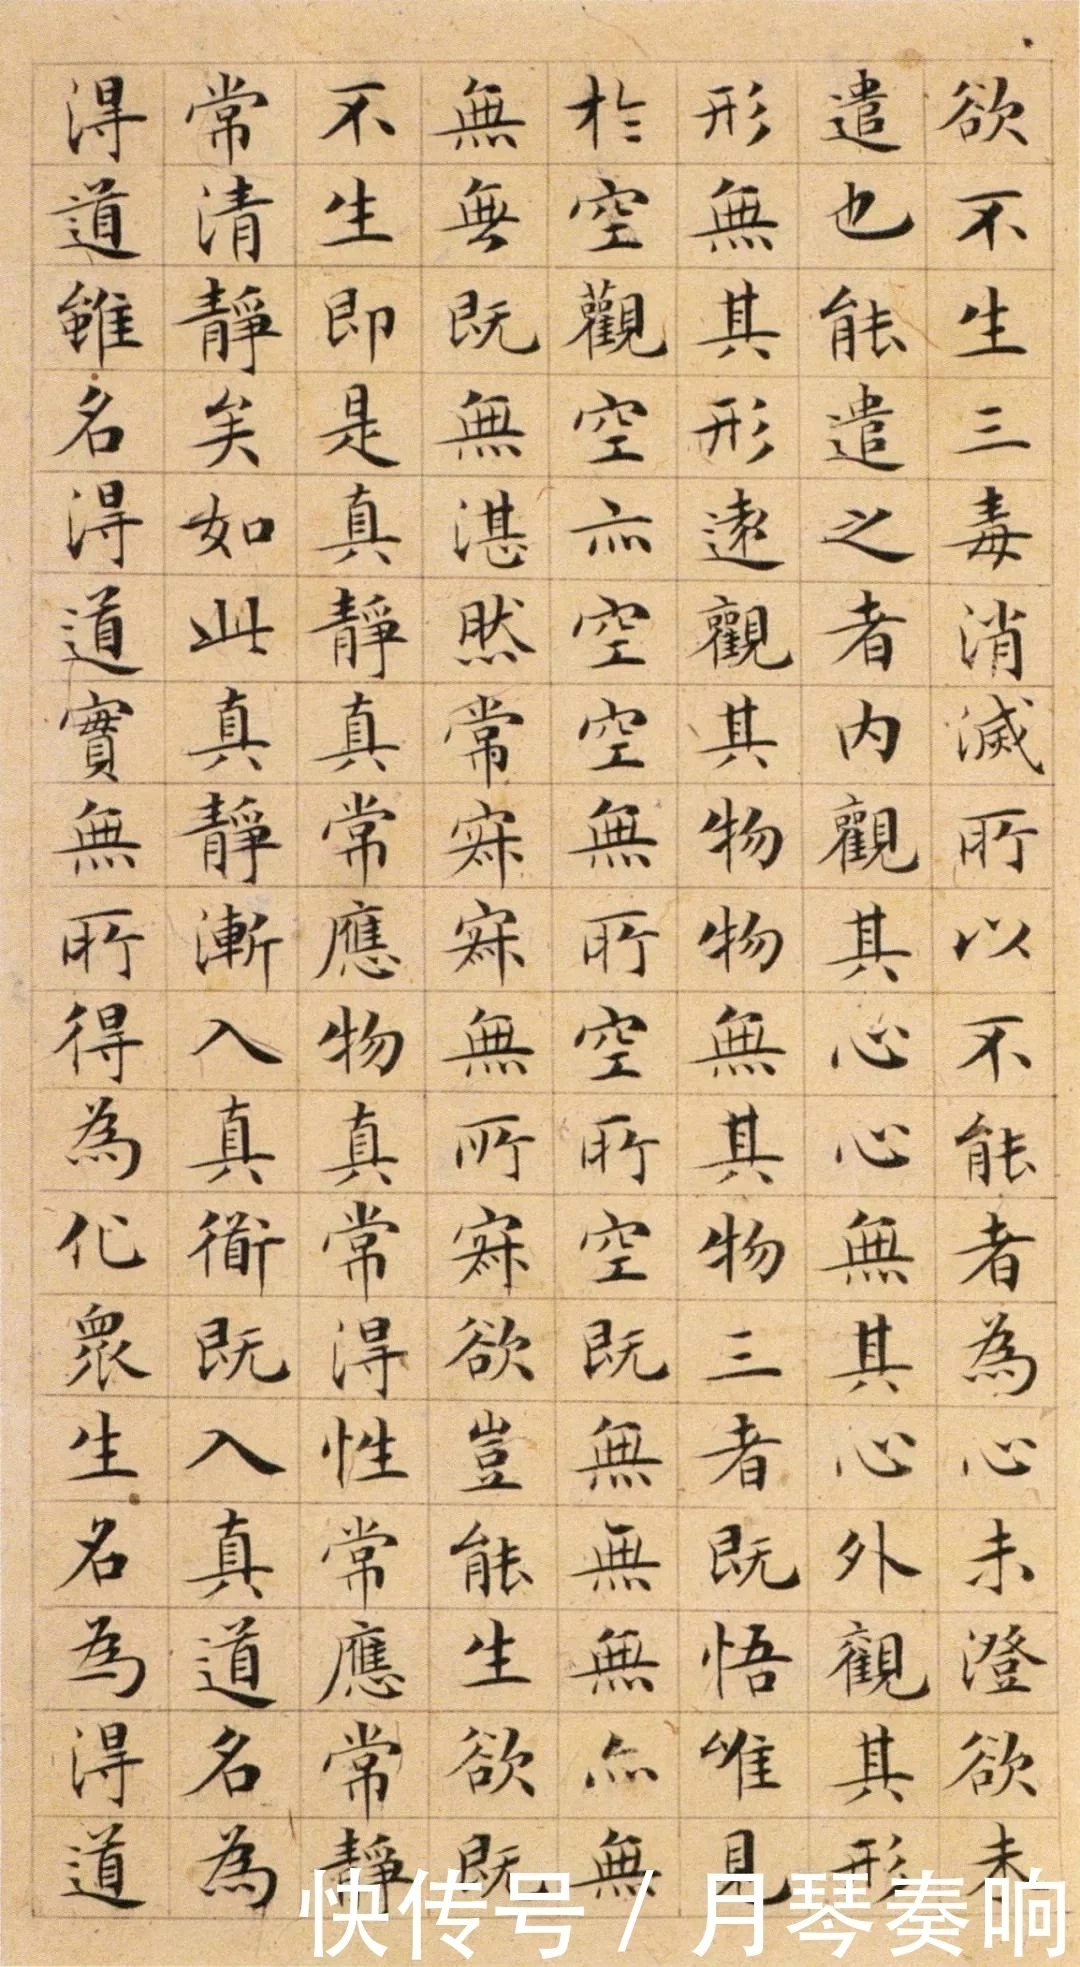 欲不生三毒消滅所以不能者為心未澄欲未
遣也能遣之者内觀其心心無其心外觀其形
形無其形遠觀其物物無其物三者既悟唯見
於空觀空亦空空無所空所空既無無無亦無
無無既無湛然常寂寂無所寂欲豈能生欲既
不生即是真靜真常應物真常得性常應常靜
常清靜矣如此真靜漸入真衜既入真道名為
得道雖名得道實無所得為化眾生名為得道
快传号 / 月琴奏响